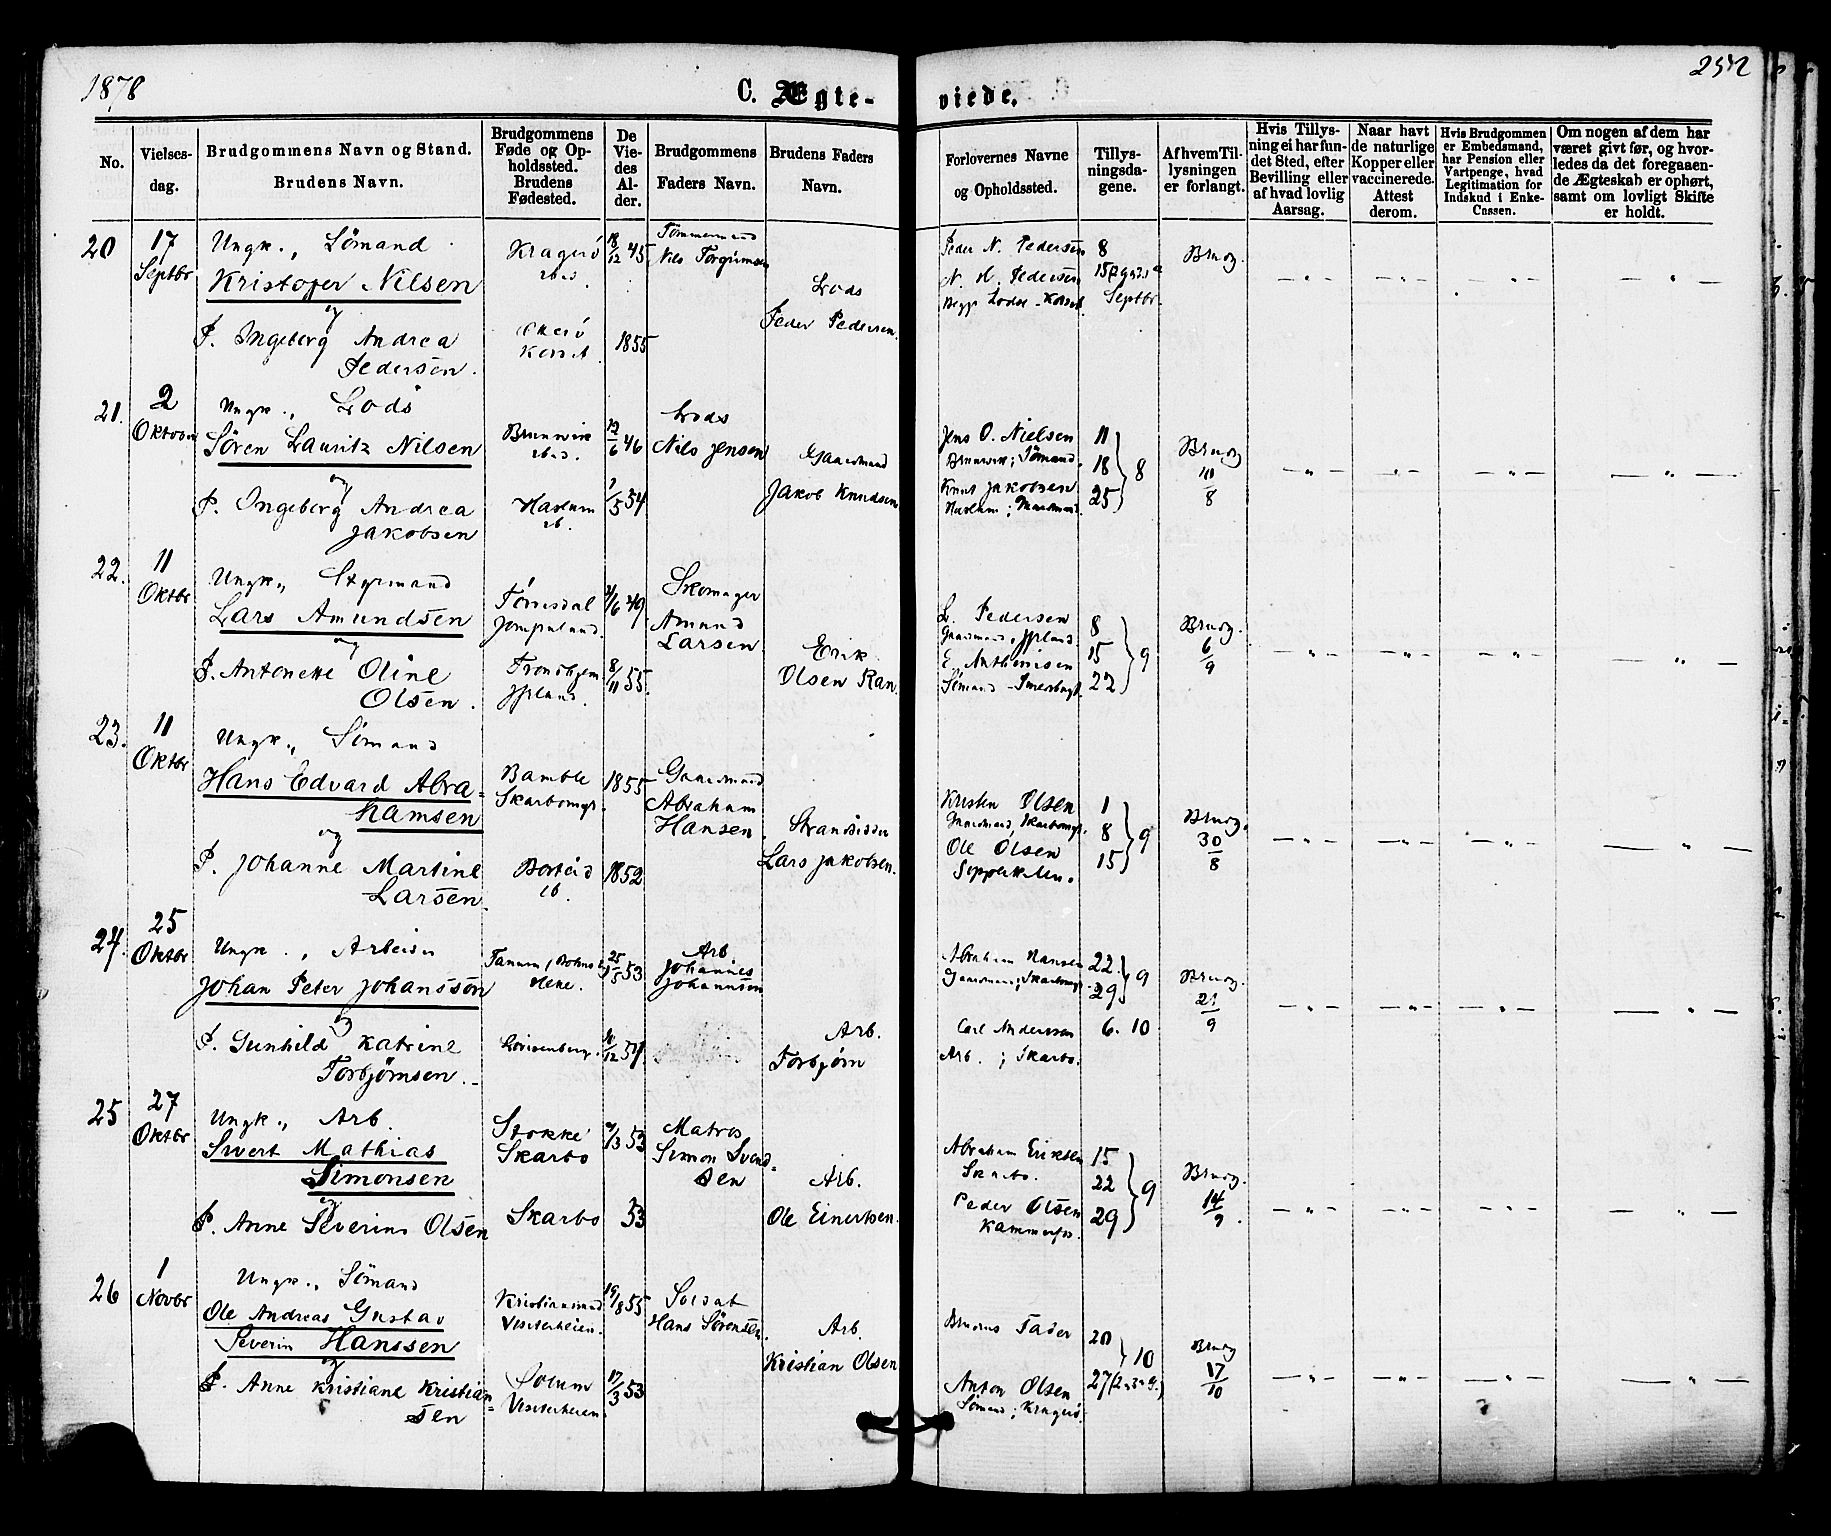 1878
C. Ægte-
viede.
252
No.
Vielses-
dag.
Brudgommens Navn og Stand.
Brudens Navn.
Brudgommens
Føde og Op-
holdssted.
Brudens
Fødested.
De
Vie-
des
Al-
der.
Brudgommens
Faders Navn.
Brudens Faders
Navn.
Forlovernes Navne
og Opholdssted.
Tillys-
ningsda-
gene.
Af hvem Til-
lysningen
er forlangt.
Hvis Tillys-
ning ei har fun-
det Sted, efter
Bevilling eller
af hvad lovlig
Aarsag.
Naar havt
de naturlige
Kopper eller
vaccinerede.
Attest
derom.
Hvis Brudgommen
er Embedsmand,
har Pension eller
Vartpenge, hvad
Legitimation for
Indskud i Enke-
Cassen.
Om nogen af dem har
været givt før, og hvor-
ledes da det foregaaen-
de Ægteskab er ophørt,
samt om lovligt Skifte
er holdt.
20
17
Septbr
Ungk., Sömand
Kristofer Nilsen
og
P. Ingeberg Andrea
Pedersen.
Kragerö
18/12 45
1855
Tömmermand
Nils Torgrimsen
Lods
Peder Pedersen.
Peder N. Pedersen
N. H. Pedersen
Begge Lodse
8
15
Septbr.
Brudg.
21.
2
Oktobr
Ungk., Lods
Sören Lauritz Nilsen
og
P. Ingeberg Andrea
Jakobsen
12/6 46
1/5 54
Lods
Nils Jensen
Gaardmand
Jakob Knudsen
Jens O. Nielsen
Sömand.
Knut Jakobsen
11
18
25
8
Brudg
10/8
22.
11
Oktbr
Ungk., Styrmand
Lars Amundsen
og
P. Antonette Oline
Olsen.
Törrisdal
Jomfruland.
49.
8/11 55.
Skomager
Amund
Larsen
Erik
Olsen Ran.
L. Pedersen
E. Anthonisen
Sömand
8
15
22
9
Brudg.
6/9
23.
11
Oktbr
Ungk., Sömand
Hans Edvard Abra-
hamsen
og
P. Johanne Martine
Larsen.
Bamble
1855
1852
Gaardmand
Abraham
Hansen
Strandsidder
Lars Jakobsen.
Kristen Olsen
Ole Olsen
1
8
15
9
Brudg.
30/8
24.
25
Oktbr
Ungk., Arbeider
Johan Peter Johanssön
og
P. Gunhild Katrine
Torbjörnsen.
25/5 53
54.
Arb
Johannes
Johannsen
Arb.
Torbjörn
Abraham Hansen
Carl Andersson
Arb. ; Skarbo.
22.
29
9
6. 10
Brudg.
21/9
25
27
Oktbr
Ungk., Arb.
Sivert Mathias
Simonsen
og
P. Anne Severine Olsen
Stokke
Skarbo
53
Skarbo
53
Matros
Simon Svend-
sen
Arb.
Ole Einertsen.
Abraham Eriksen
Skarbo.
Peder Olsen
Kammerfos.
15
22
29
9
Brudg.
14/9.
26
1
Novbr
Ungk., Sömand
Ole Andreas Gustav
Severin Hanssen
og
P. Anne Kristiane Kristian-
sen
Kristianssand
Vesterheien.
19/8 55
Solum
Vesterheien
17/3 53
Soldat
Hans Sörensen.
Arb.
Kristian Olsen
Brudens Fader
Anton Olsen
Sömand; Kragerö.
20
27
10
Brudg
17/10